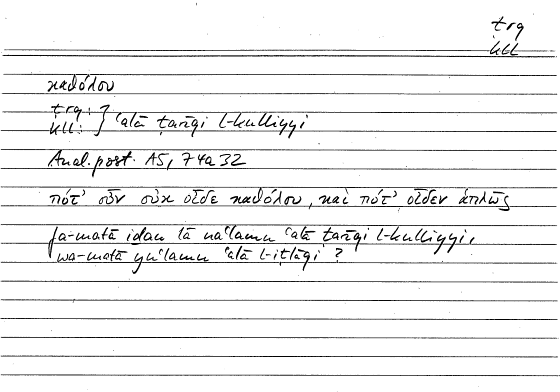 trq
kll
καθόλου
trq: }
kll: } ʿalā ṭarīqi l-kulliyyi
Anal. post. A5, 74a32
πότ’ οὖν οὐκ οἶδε καθόλου, καὶ πότ’ οἶδεν ἁπλῶς
fa-matā iḏan lā naʿlamu ʿalā ṭarīqi l-kulliyyi,
wa-matā yuʿlamu ʿalā l-iṭlāqi ?